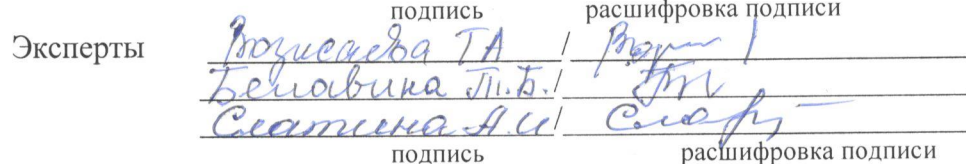 подпись расшифровка подписи
Эксперты Возисаева ТА /
Белавина Т.Б. /
Слатина А.И /
подпись расшифровка подписи